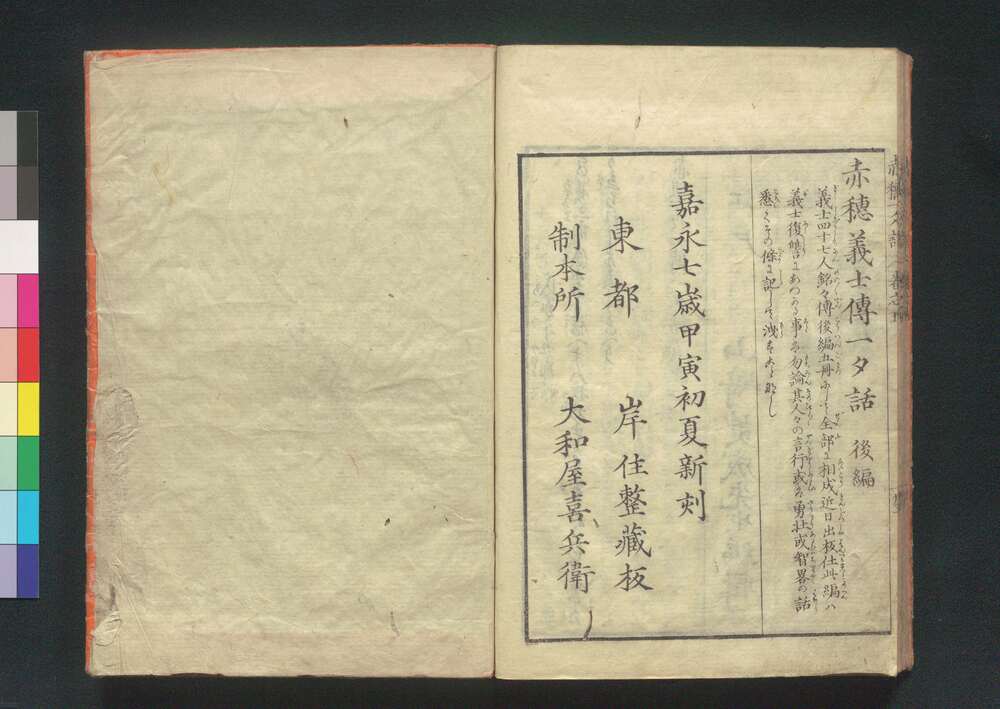 赤穗義士傳一夕話 後編
義士四十七人銘々傳後編五冊にして全部に相成近日出板仕此編ハ
義士復讐にあづかる事ハ勿論其人々の言行或ハ勇壮或智畧の話
悉くその條に記して洩すことなし
嘉永七歳甲寅初夏新刻
東都 岸住整藏板
制本所 大和屋喜兵衛